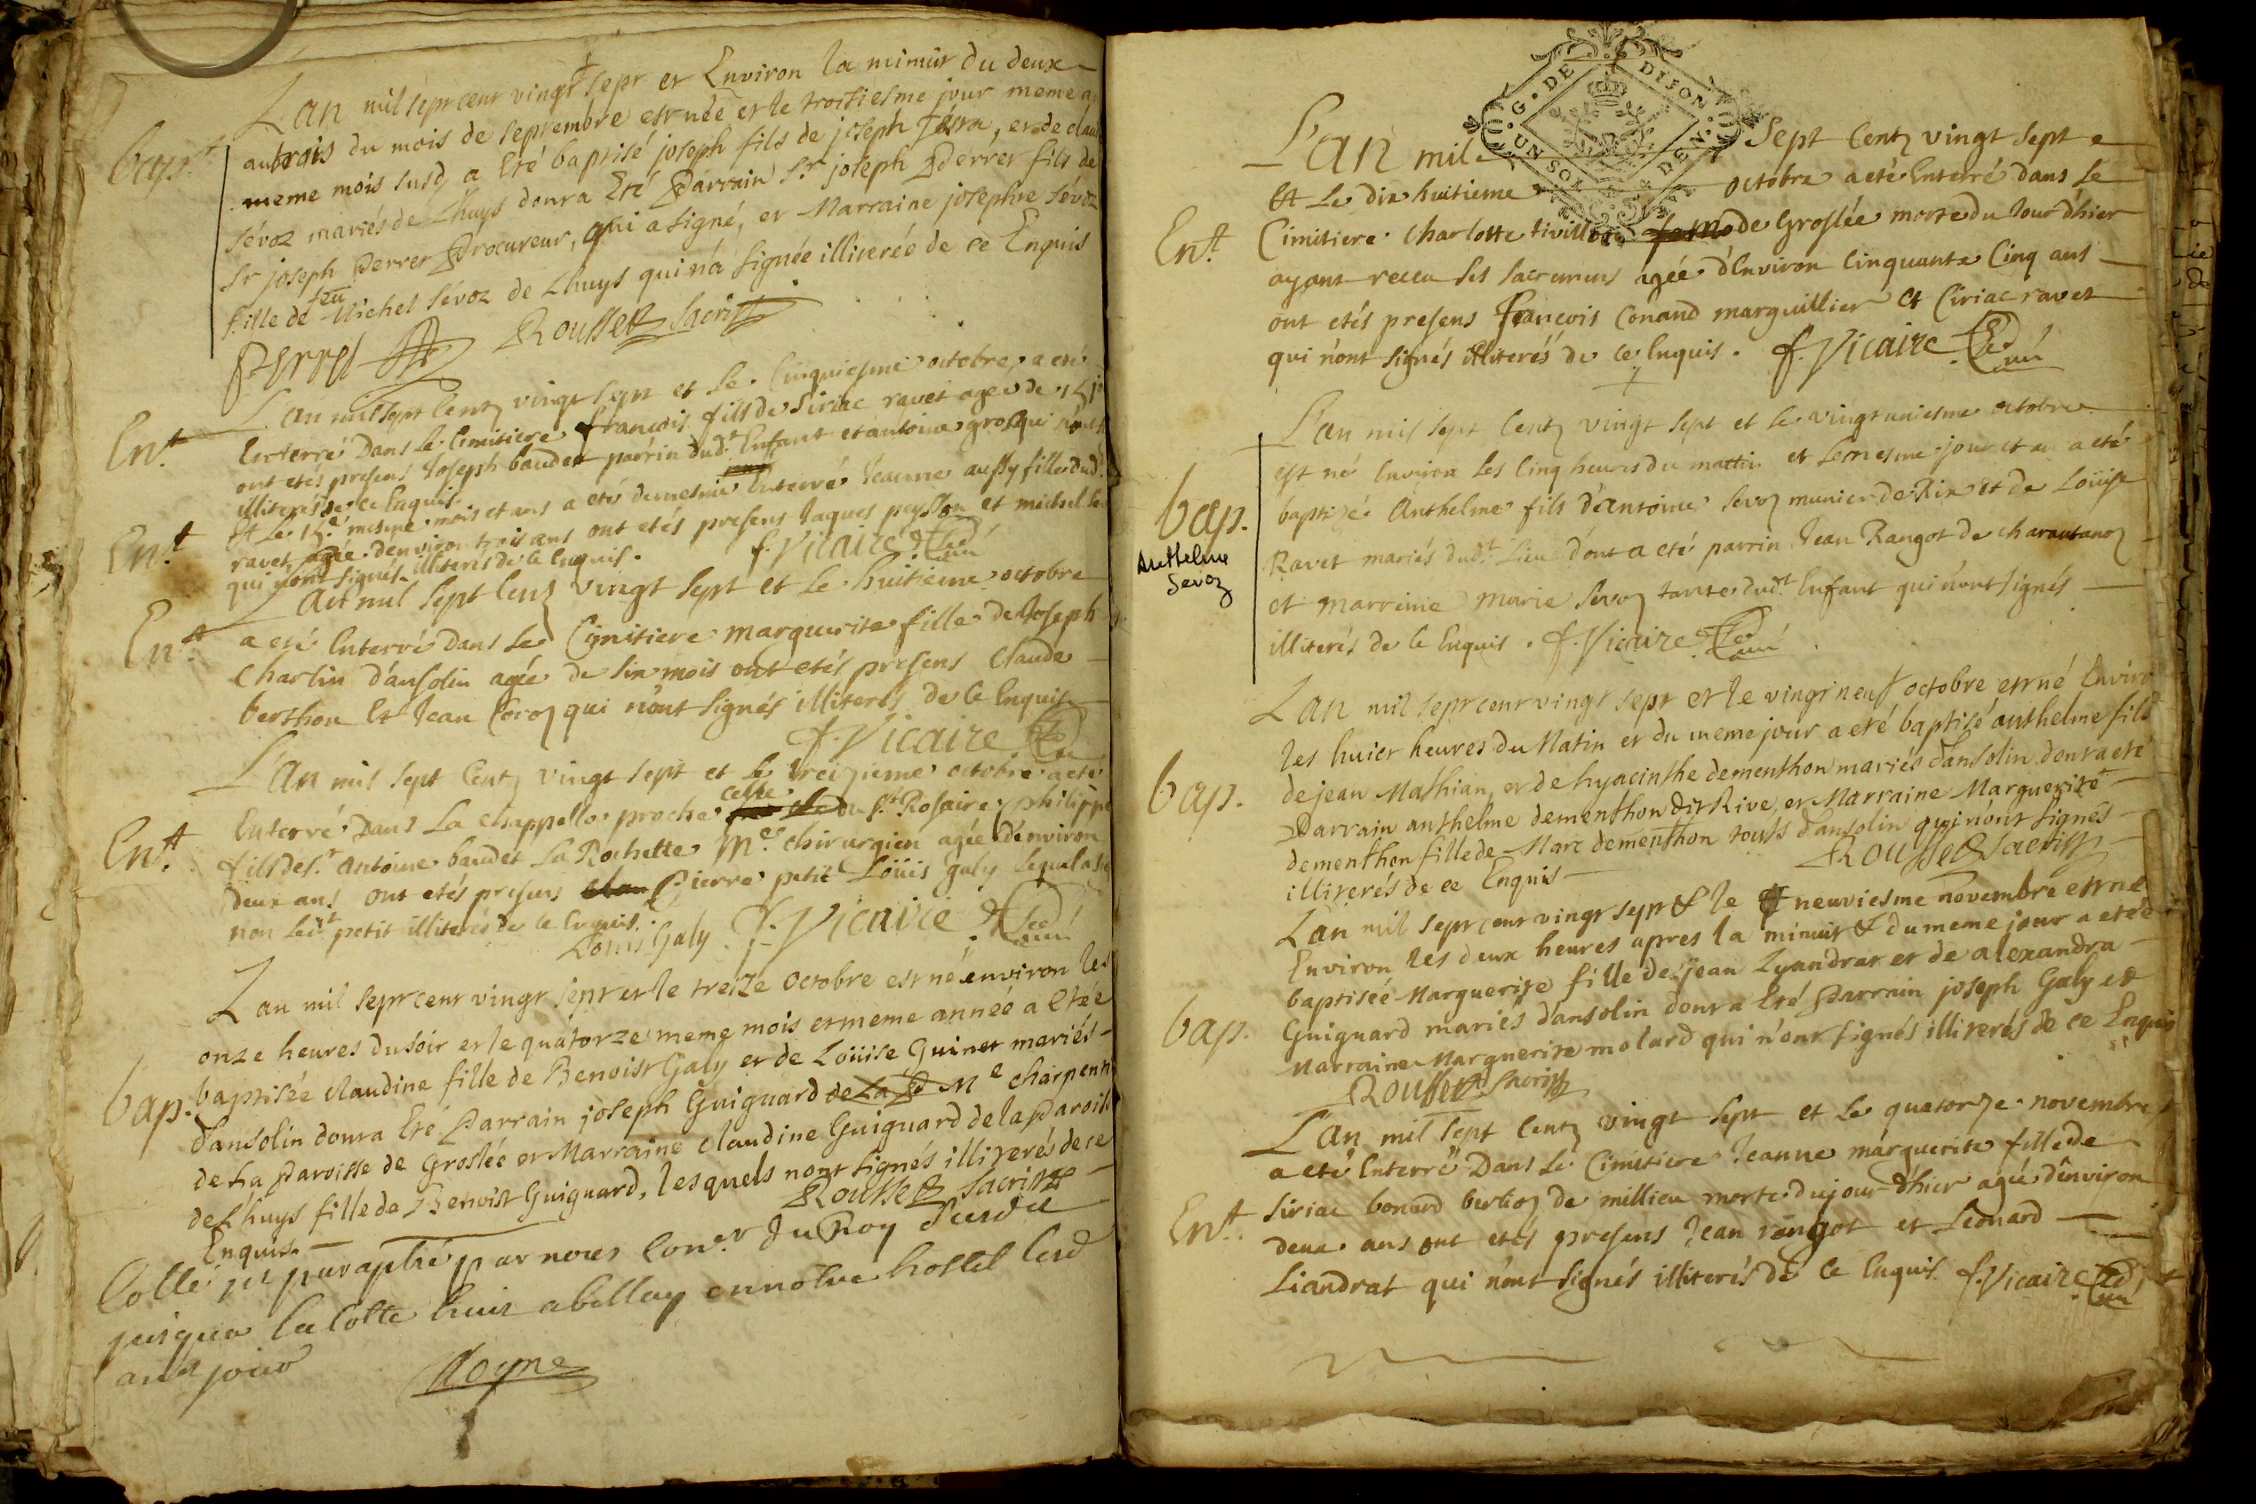 Lan mil sept cent vingt sept et Environ la minuit du deux
au trois du mois de septembre est née et le troisiesme jour meme an
bapt.
meme mois susd a Eté baptisé joseph fils de joseph Ferra, et de clau
sévoz mariés de Lhuys dont a Eté Parrain Sr joseph Perret fils de
Sr joseph Perret Procureur, qui a signé, et Marraine josephte Sévoz
fille de feu Michel Sévoz de Lhuys qui n'a signée illiterée de ce Enquis
Perret Rousset Sacrist
Lan mil sept Centz vingt sept et le Cinquiesme octobre a eté
Ent
Enterré Dans le Cimitiere francois fils de Siriac ravet agée de 15 j
ont etés presens Joseph baudet parrin dud. Enfant et antoine gros qui n'ont
illiterés de ce Enquis.
Ent
et Le mesme mois et ans a eté demesme Enterré Jeanne aussy fille dud.
ravet agée denviron trois ans ont etés presens Jaques peysson et michel
qui n'ont signés illiterés de ce Enquis. f. Vicaire
Ent
L'An mil sept Centz vingt sept et le huitieme octobre
a eté Enterré Dans Le Cimitiere marguerite fille de Joseph
Charlin d'ansolin agée de six mois ont etés presens Claude
berthon et Jean Coroz qui n'ont signés illiterés de ce Enquis
f. Vicaire
L'An mil sept Centz vingt sept et le treizieme octobre a eté
Ent
Enterré Dans La chappelle proche celle du St Rosaire philippe
fils de Sr. antoine baudet La Rochette Me chirurgien agée d'environ
deux ans ont etés presens Pierre petit Loüis galy lequel a sig
non led. petit illiterés de ce Enquis.
Louis Galy f. Vicaire
Lan mil sept cent vingt sept et le treize octobre est né environ les
onze heures du soir et le quatorze meme mois et meme année a Etée
bap.
baptisée claudine fille de Benoist Galy et de Loüise Guinet mariés
d'ansolin dont a Eté Parrain joseph Guiguard de La P Me charpenti
de La Paroisse de Groslée et Marraine claudine Guiguard de la Paroiss
de Lhuys fille de Benoist Guiguard, lesquels n'ont signés illiterés de ce
Enquis. Rousset Sacrist
Cotté et paraphé par nous Coner du Roy
jusqua la cotte huit a bellay en nôtre hostel
an et jour
Moyne
G. DE DIJON
UN SOL DEN.
L'an mil Sept Centz vingt sept
Et Le dix huitieme octobre a eté Enterré dans Le
Ent
Cimitiere Charlotte tivillon femme de Groslée morte du Jour d'hier
ayant receu les sacremens agée d'Environ Cinquante Cinq ans
ont etés presens Francois Conand marguillier et Ciriac ravet
qui n'ont signés illiterés de ce Enquis. f. Vicaire
L'an mil sept Centz vingt sept et le vingt uniesme octobre
est né Environ les Cinq heures du mattin et le mesme jour et an a eté
bap.
Anthelme
Sevoz
baptizé Anthelme fils d'antoine Sevoz munier de Rix et de Loüise
Ravet mariés dud. Lieu dont a eté parrin Jean Rangot de charantanoz
et marreine marie Sevoz tante dud. Enfant qui n'ont signés
illiterés de ce Enquis. f. Vicaire
Lan mil sept cent vingt sept et le vingt neuf octobre est né Enviro
les huict heures du Matin et du meme jour a eté baptisé anthelme fils
bap.
de jean Mathian, et de hyacinthe dementhon mariés d'ansolin dont a eté
Parrain anthelme dementhon dit Rive, et Marraine Marguerite
dementhon fille de Marc dementhon tous d'ansolin qui n'ont signés
illiterés de ce Enquis Rousset Sacrist
Lan mil sept cent vingt sept & le neuviesme novembre est née
Environ les deux heures apres la minuit & du meme jour a etée
bap.
baptisée Marguerite fille de jean Lyandrat et de alexandra
Guiguard mariés d'ansolin dont a Eté Parrain joseph Galy et
Marraine Marguerite molard qui n'ont signés illiterés de ce Enquis
Rousset Sacrist
L'an mil sept Centz vingt sept et le quatorze novembre
a eté Enterré Dans Le Cimitiere Jeanne marguerite fille de
Ent.
Siriac bonard berlioz de millieu morte du jour d'hier agée d'environ
deux ans ont etés presens Jean rangot et Leonard
Liandrat qui n'ont signés illiterés de ce Enquis. f. Vicaire